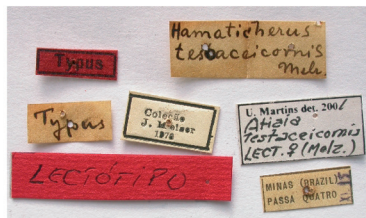 Typus
Hamaticherus
testaceicornis
Melz.
Typus
Coleção
J. Melzer
1979
U. Martins det. 2001
Atizia
testaceicornis
LECT. ♀ (Melz.)
LECTÓTIPO
MINAS (BRAZIL)
PASSA QUATRO